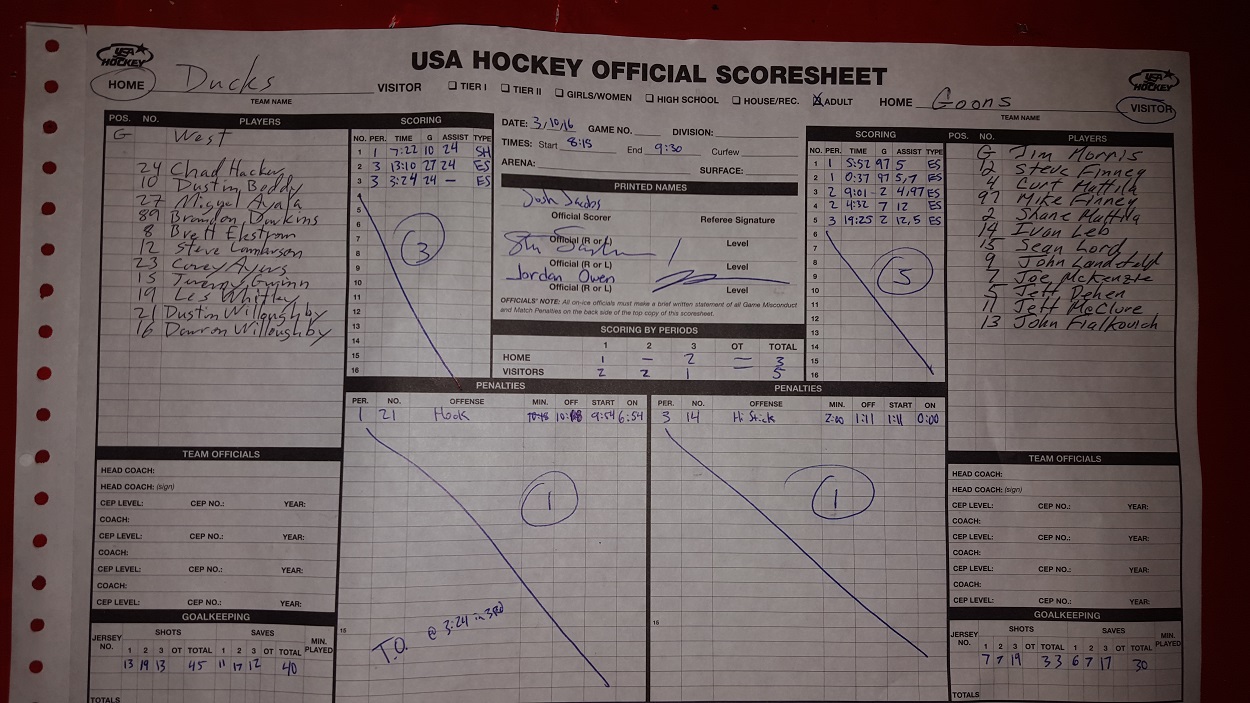 USA HOCKEY OFFICIAL SCORESHEET
USA HOCKEY
USA HOCKEY
HOME Ducks VISITOR
TEAM NAME
☐ TIER I ☐ TIER II ☐ GIRLS/WOMEN ☐ HIGH SCHOOL ☐ HOUSE/REC. ☒ ADULT
HOME Goons VISITOR
TEAM NAME
POS. NO. PLAYERS
G West
24 Chad Hackus
10 Dustin Boddy
27 Miguel Ayala
89 Brandon Dawkins
8 Brett Ekstrom
12 Steve
23 Corey Ayers
15
19 Les Whitley
21 Dustin Willoughby
16 Damron Willoughby
SCORING
NO. PER. TIME G ASSIST TYPE
1 1 7:22 10 24 SH
2 3 13:10 27 24 ES
3 3 3:24 24 — ES
4
5
6
7
8
9
10
11
12
13
14
15
16
3
DATE: 3/10/16 GAME NO. DIVISION:
TIMES: Start 8:15 End 9:30 Curfew
ARENA: SURFACE:
PRINTED NAMES
Josh Jacobs
Official Scorer Referee Signature
Official (R or L) Level
Official (R or L) Level
Jordan Owen
Official (R or L) Level
OFFICIALS' NOTE: All on-ice officials must make a brief written statement of all Game Misconduct
and Match Penalties on the back side of the top copy of this scoresheet.
SCORING BY PERIODS
1 2 3 OT TOTAL
HOME 1 — 2 = 3
VISITORS 2 2 1 5
SCORING
NO. PER. TIME G ASSIST TYPE
1 1 5:52 97 5 ES
2 1 0:37 97 5,7 ES
3 2 9:01 2 4,97 ES
4 2 4:32 7 12 ES
5 3 19:25 2 12,5 ES
6
7
8
9
10
11
12
13
14
15
16
5
POS. NO. PLAYERS
G Jim Morris
12 Steve Finney
4 Curt Mattila
97 Mike Finney
2 Shane Mattila
14 Ivan Leb
15 Sean Lord
9 John Landefeld
7 Joe McKenzie
5 Jeff Dehen
11 Jeff McClure
13 John Fialkovich
PENALTIES
PER. NO. OFFENSE MIN. OFF START ON
1 21 Hook 9:54 6:54
1
15
T.O. @ 3:24 in 3RD
PENALTIES
PER. NO. OFFENSE MIN. OFF START ON
3 14 Hi Stick 2:00 1:11 1:11 0:00
1
15
TEAM OFFICIALS
HEAD COACH:
HEAD COACH: (sign)
CEP LEVEL: CEP NO.: YEAR:
COACH:
CEP LEVEL: CEP NO.: YEAR:
COACH:
CEP LEVEL: CEP NO.: YEAR:
COACH:
CEP LEVEL: CEP NO.: YEAR:
GOALKEEPING
JERSEY NO. SHOTS SAVES MIN. PLAYED
1 2 3 OT TOTAL 1 2 3 OT TOTAL
13 19 13 45 11 17 12 40
TOTALS
TEAM OFFICIALS
HEAD COACH:
HEAD COACH: (sign)
CEP LEVEL: CEP NO.: YEAR:
COACH:
CEP LEVEL: CEP NO.: YEAR:
COACH:
CEP LEVEL: CEP NO.: YEAR:
COACH:
CEP LEVEL: CEP NO.: YEAR:
GOALKEEPING
JERSEY NO. SHOTS SAVES MIN. PLAYED
1 2 3 OT TOTAL 1 2 3 OT TOTAL
7 7 19 33 6 7 17 30
TOTALS